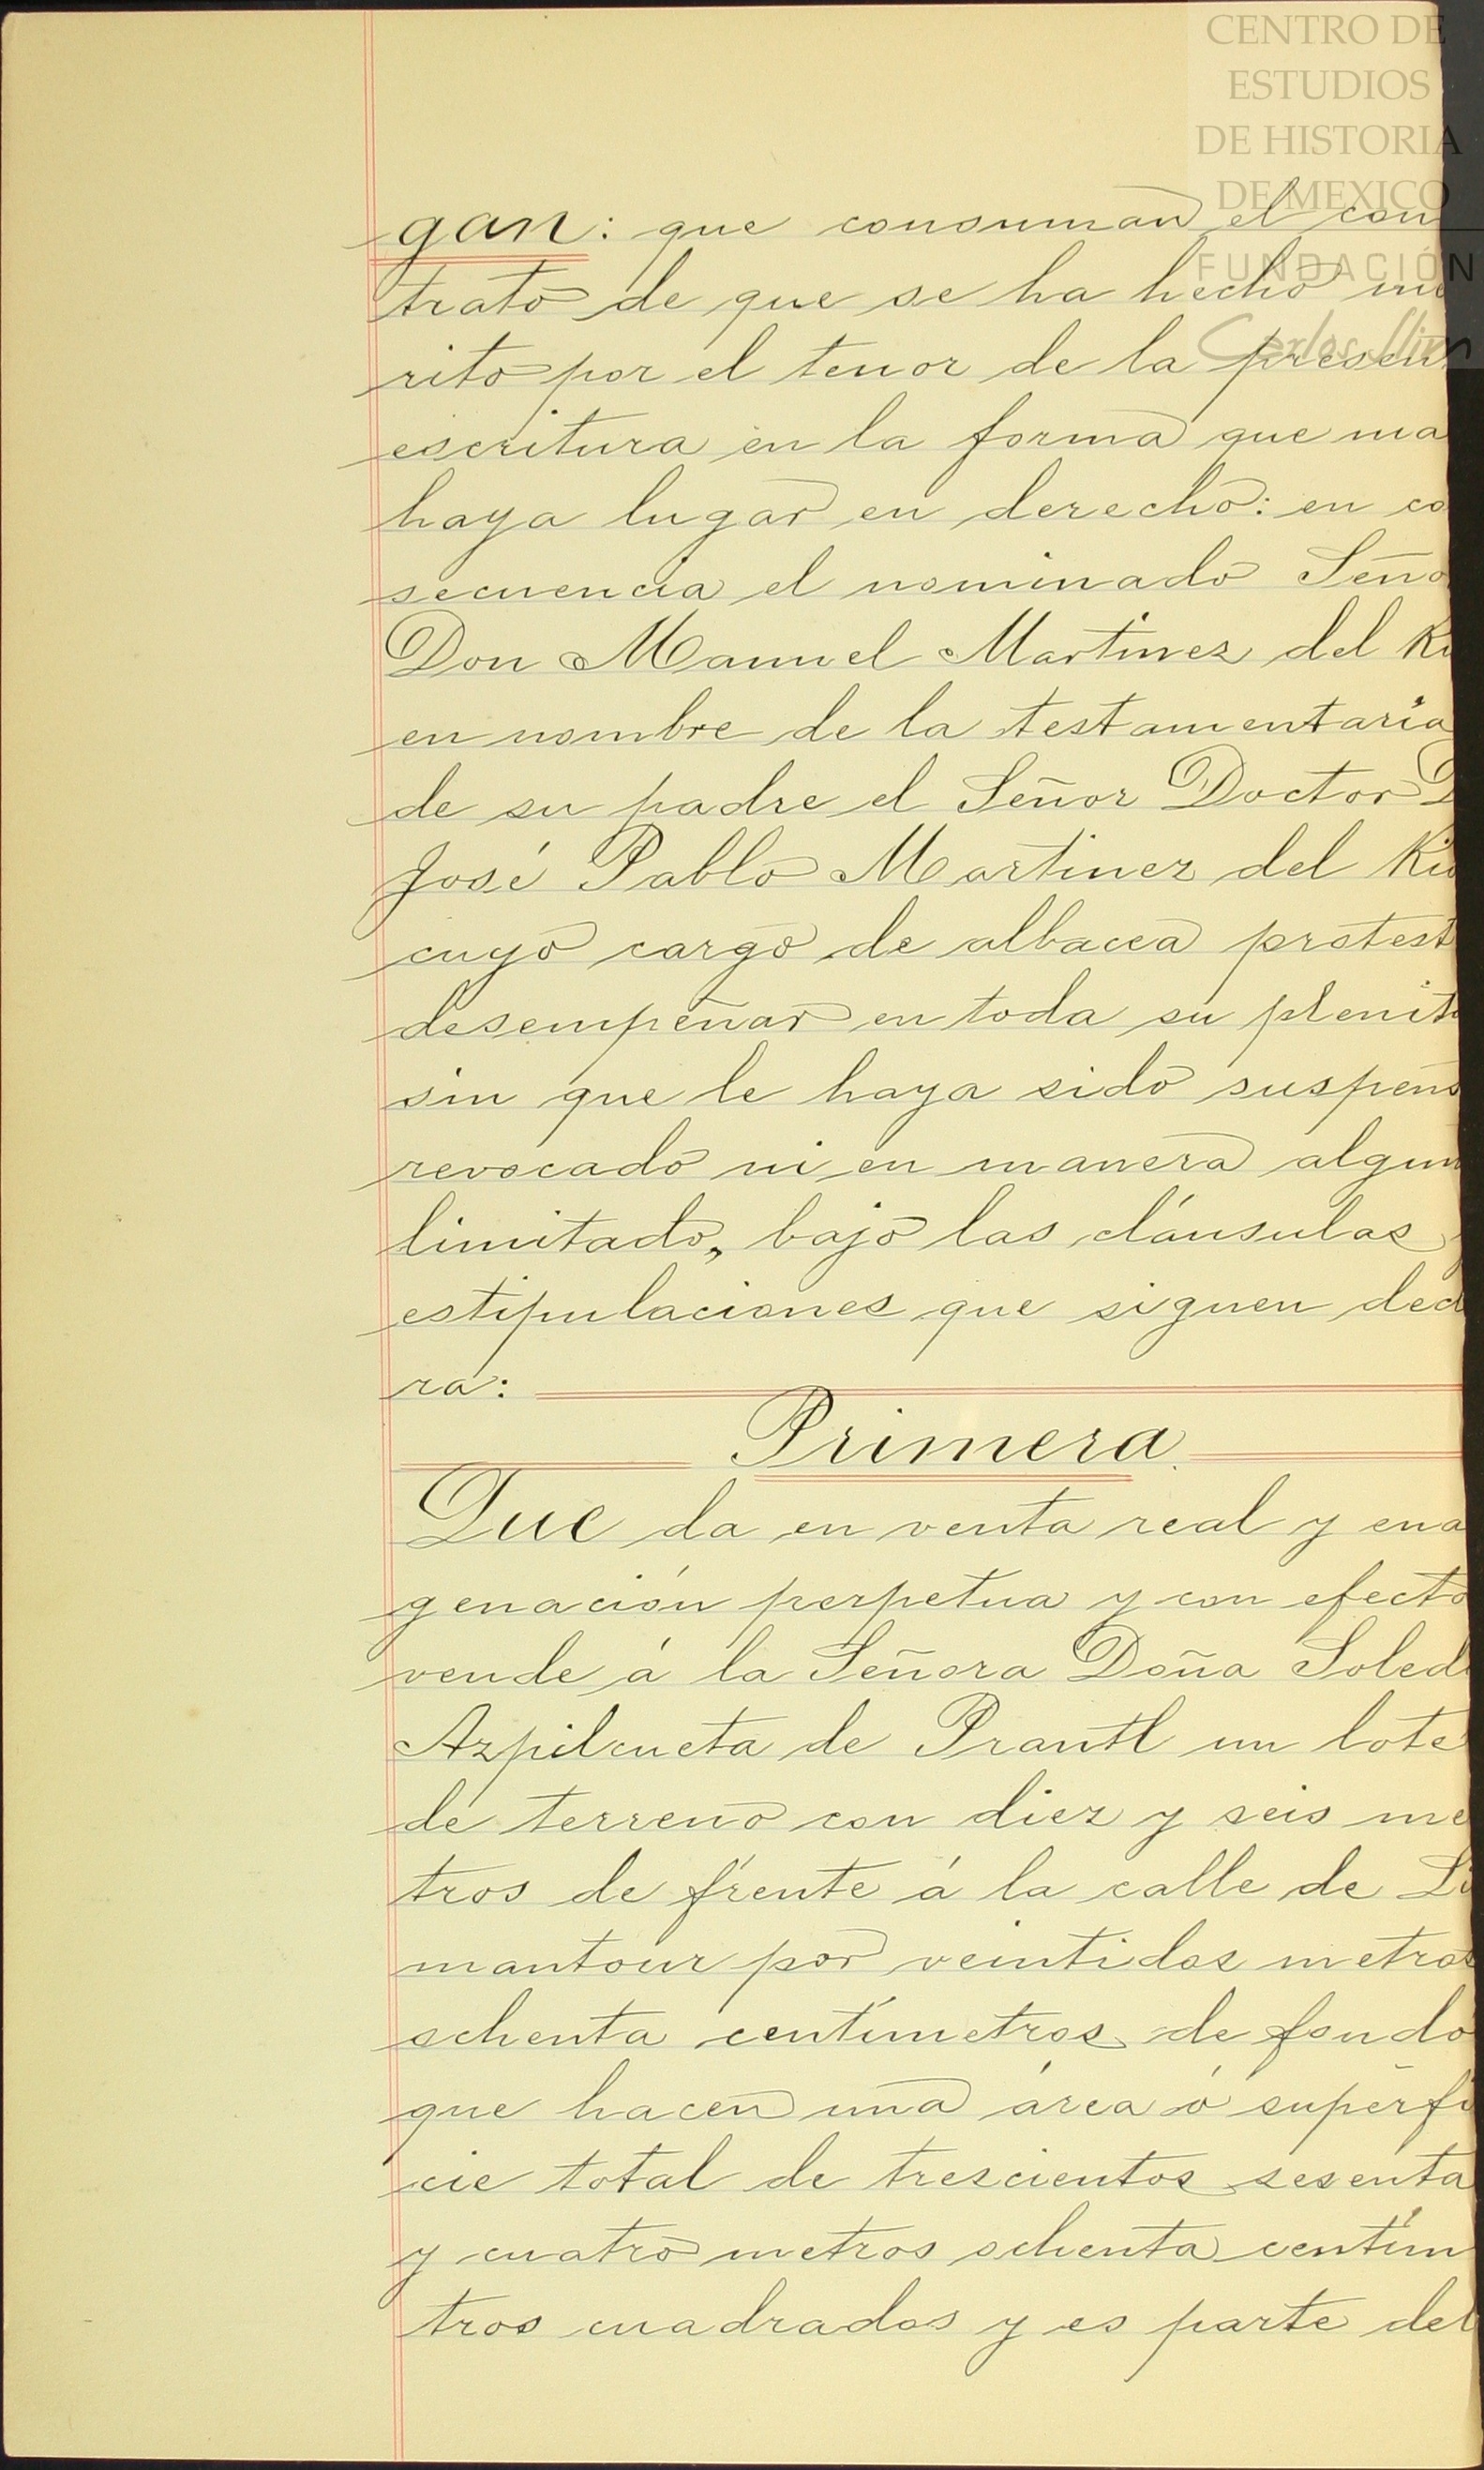 CENTRO DE
ESTUDIOS
DE HISTORIA
DE MEXICO
FUNDACIÓN
Carlos Slim
gan: que consuman el con
trato de que se ha hecho mé
rito por el tenor de la presen
escritura en la forma que ma
haya lugar en derecho: en co
secuencia el nominado Seño
Don Manuel Martinez del Ri
en nombre de la testamentaría
de su padre el Señor Doctor D
José Pablo Martinez del Rio
cuyo cargo de albacea protest
desempeñar en toda su plenit
sin que le haya sido suspens
revocado ni en manera algun
limitado, bajo las cláusulas y
estipulaciones que siguen decl
ra:
Primera
Que da en venta real y ena
genación perpetua y con efecto
vende á la Señora Doña Soled
Azpilcueta de Prantl un lote
de terreno con diez y seis me
tros de frente á la calle de Li
mantour por veintidos metros
ochenta centímetros de fondo
que hacen una área ó superfi
cie total de trescientos sesenta
y cuatro metros ochenta centím
tros cuadrados y es parte del